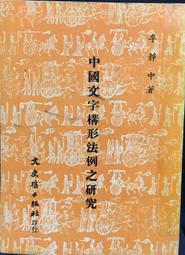 李靜中著
中國文字構形法例之研究
文史哲出版社印行